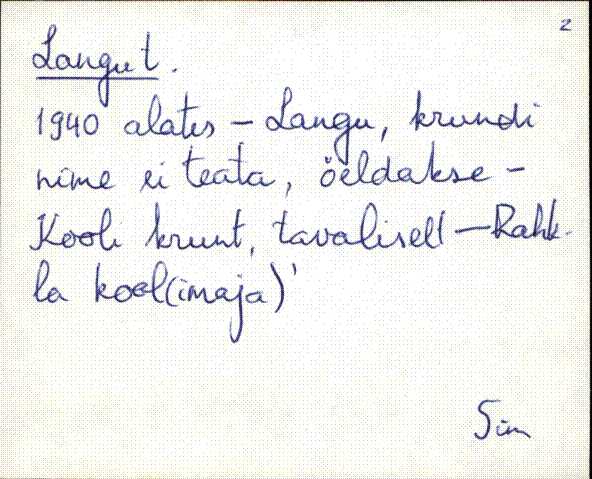 2
Langut.
1940 alates – Langu, krundi
nime ei teata, öeldakse –
Kooli krunt, tavaliselt — Rahk-
la kool(imaja)'
Sim